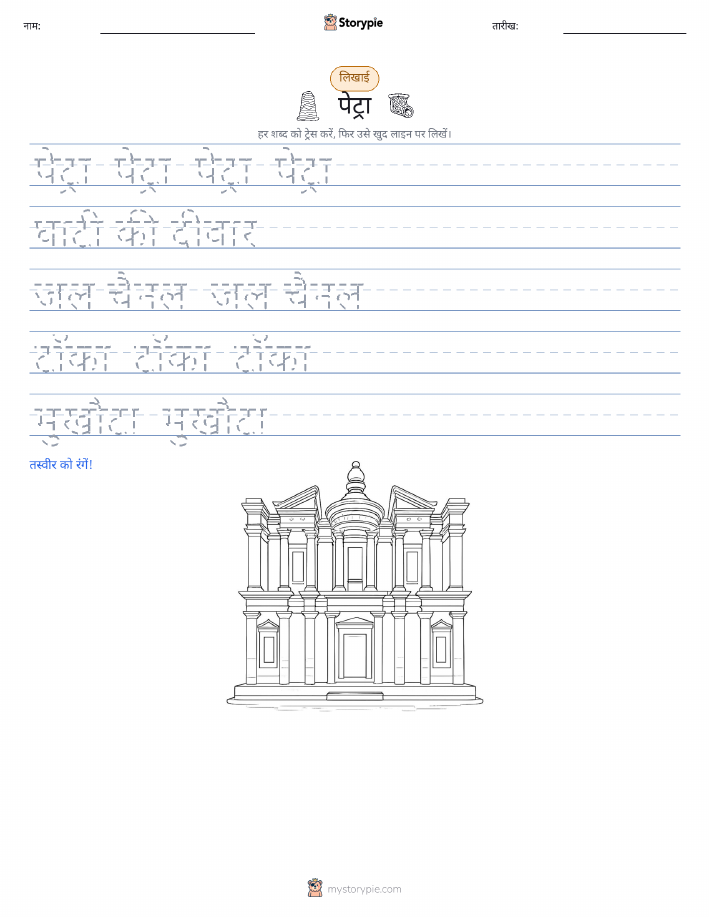 नाम:
Storypie
तारीख:
लिखाई
पेट्रा
हर शब्द को ट्रेस करें, फिर उसे खुद लाइन पर लिखें।
पेट्रा पेट्रा पेट्रा पेट्रा
घाटी की दीवार
जल चैनल जल चैनल
टॉका टॉका टॉका
मुखौटा मुखौटा
तस्वीर को रंगें!
mystorypie.com